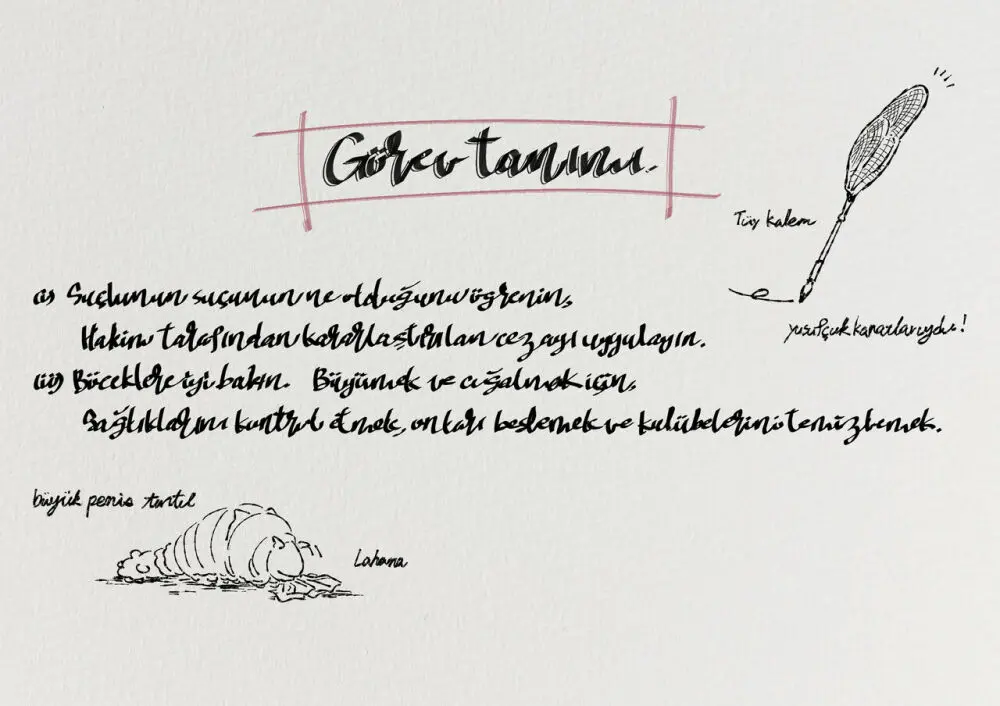 Görev tanımı.
Tüy kalem
yusufçuk kanatlarıydı!
(i) Suçlunun suçunun ne olduğunu öğrenin,
Hakim tarafından kararlaştırılan cezayı uygulayın.
(ii) Böceklere iyi bakın. Büyümek ve çoğalmak için,
Sağlıklarını kontrol etmek, onları beslemek ve kulübelerini temizlemek.
büyük penis tırtıl
Lahana